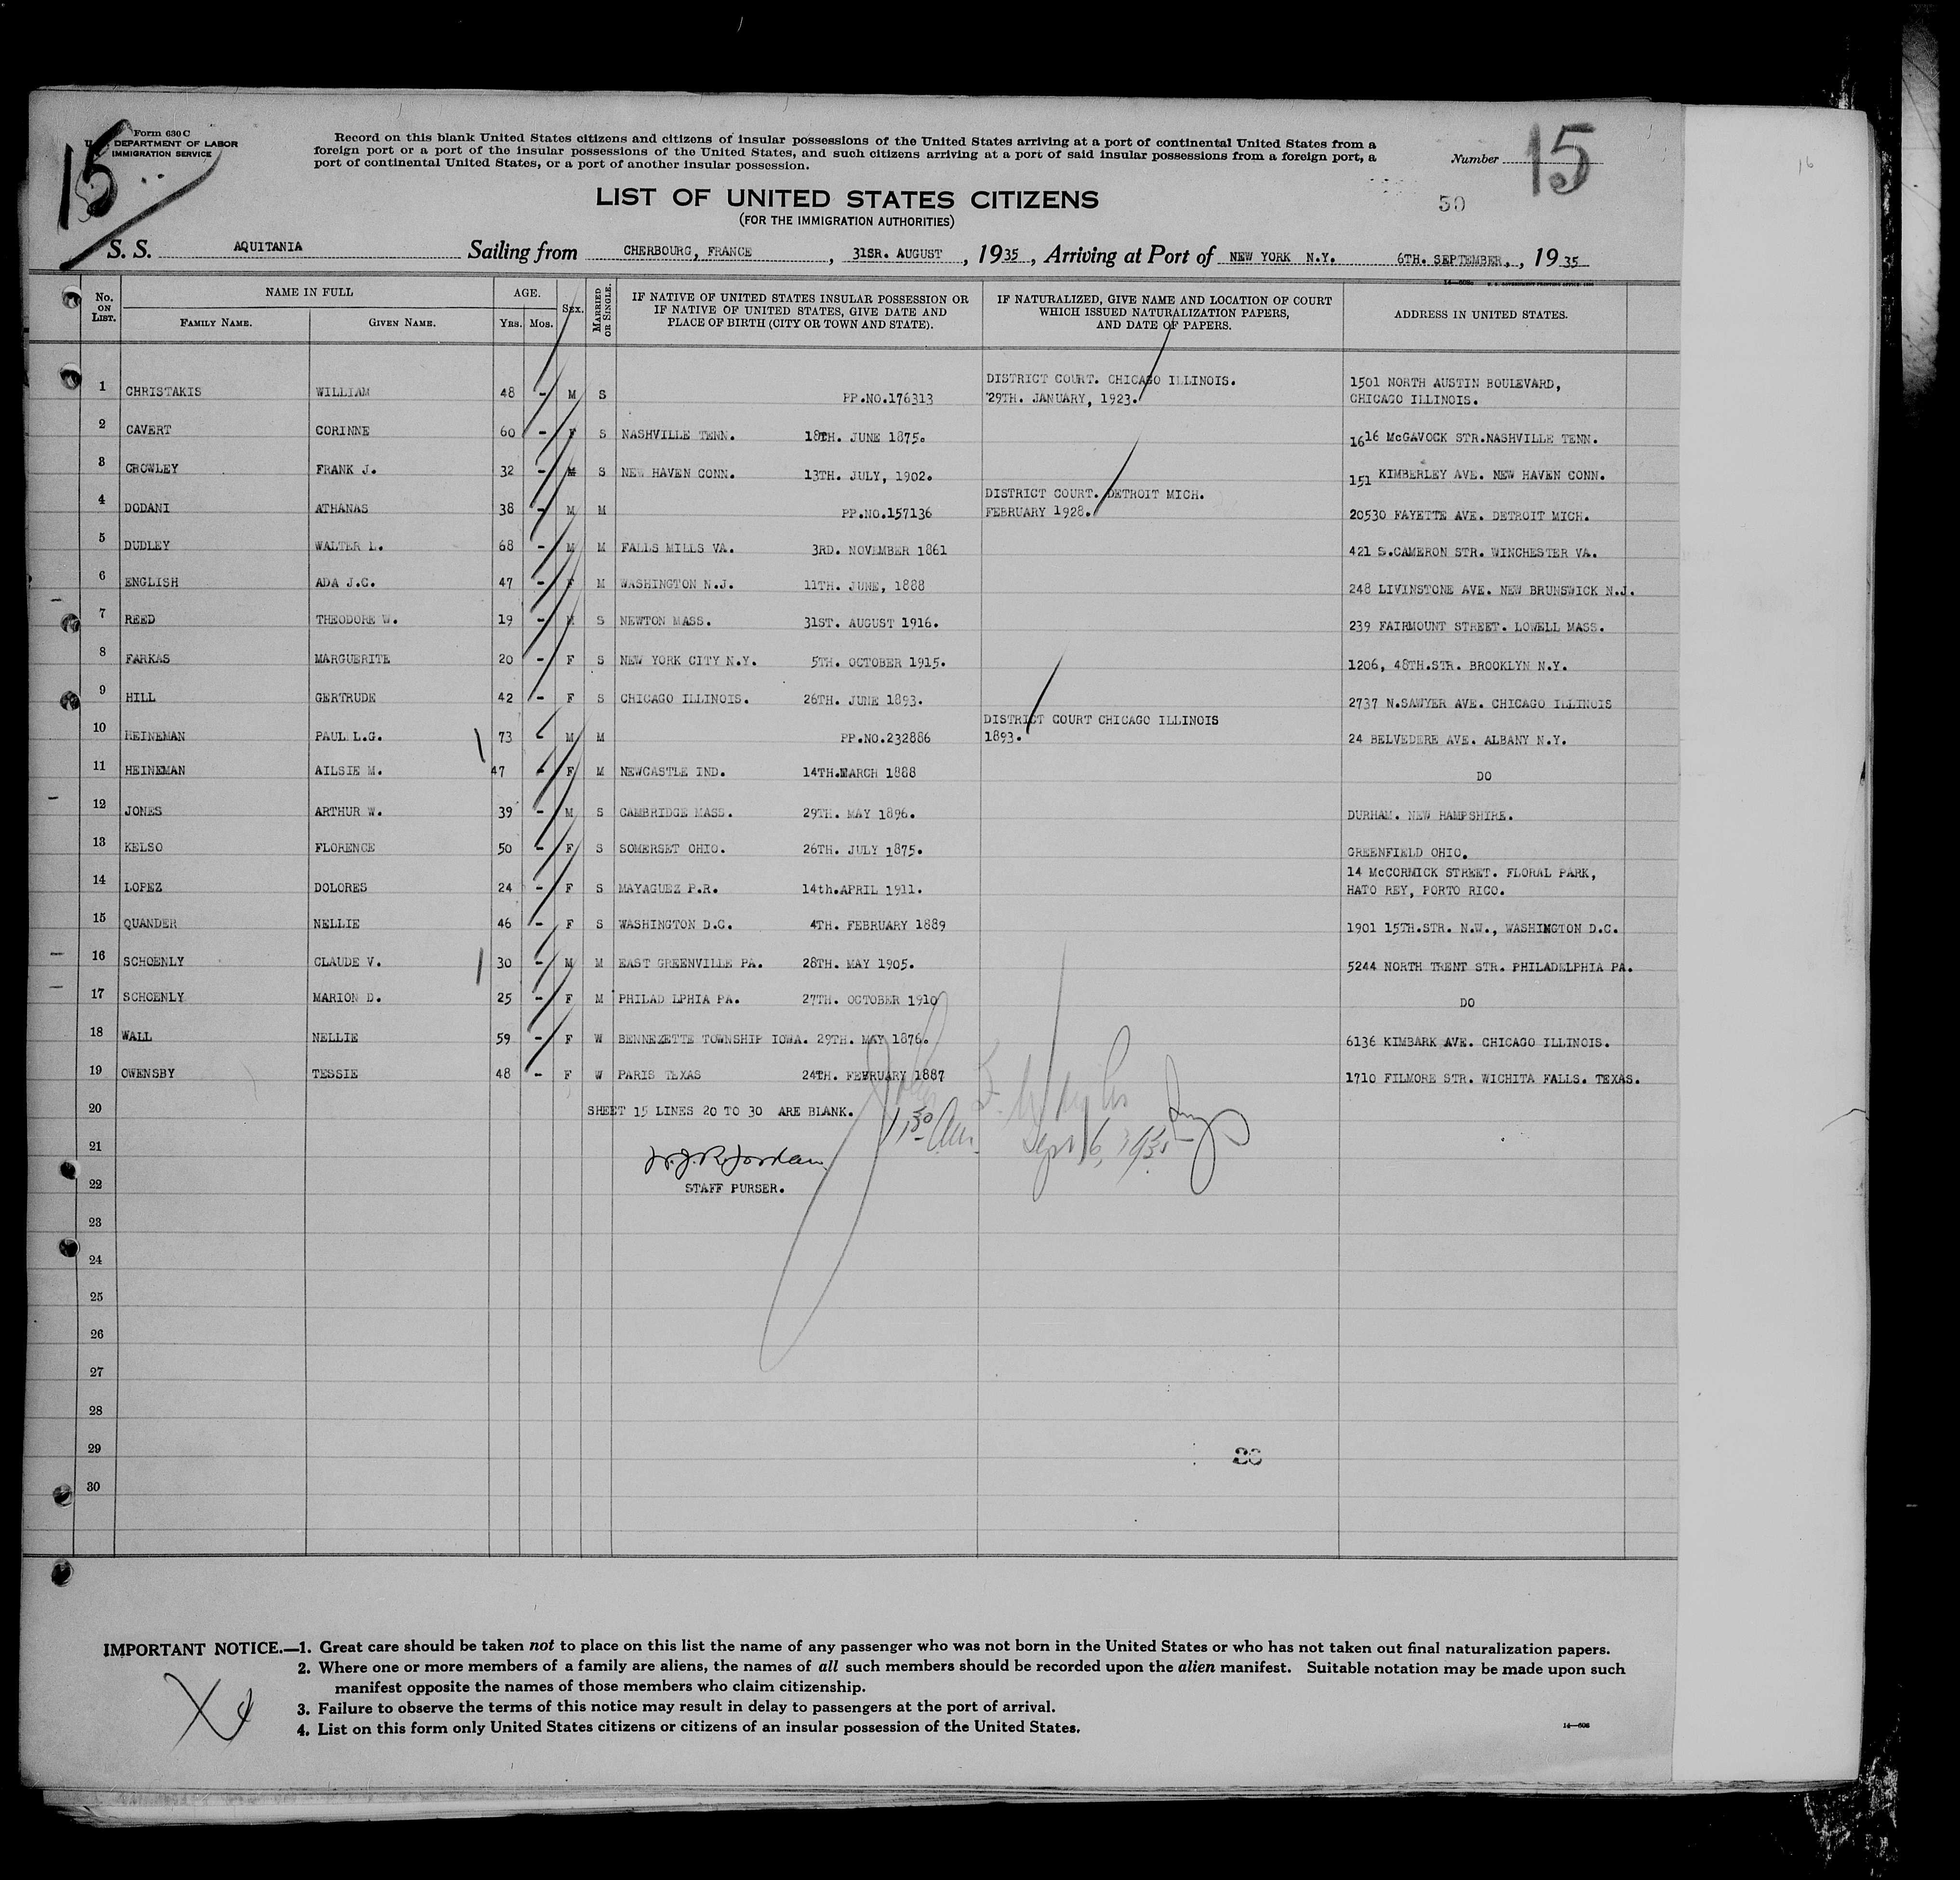 Form 630 C
U.S. DEPARTMENT OF LABOR
IMMIGRATION SERVICE
15
Record on this blank United States citizens and citizens of insular possessions of the United States arriving at a port of continental United States from a
foreign port or a port of the insular possessions of the United States, and such citizens arriving at a port of said insular possessions from a foreign port, a
port of continental United States, or a port of another insular possession.
Number 15
16
LIST OF UNITED STATES CITIZENS
50
(FOR THE IMMIGRATION AUTHORITIES)
S. S. AQUITANIA Sailing from CHERBOURG, FRANCE, 31SR. AUGUST, 1935, Arriving at Port of NEW YORK N.Y. 6TH. SEPTEMBER., 1935
No. ON LIST. NAME IN FULL FAMILY NAME. GIVEN NAME. AGE. YRS. MOS. SEX. MARRIED OR SINGLE. IF NATIVE OF UNITED STATES INSULAR POSSESSION OR IF NATIVE OF UNITED STATES, GIVE DATE AND PLACE OF BIRTH (CITY OR TOWN AND STATE). IF NATURALIZED, GIVE NAME AND LOCATION OF COURT WHICH ISSUED NATURALIZATION PAPERS, AND DATE OF PAPERS. ADDRESS IN UNITED STATES.
1 CHRISTAKIS WILLIAM 48 - M S PP.NO.176313 DISTRICT COURT. CHICAGO ILLINOIS. 29TH. JANUARY, 1923. 1501 NORTH AUSTIN BOULEVARD, CHICAGO ILLINOIS.
2 CAVERT CORINNE 60 - F S NASHVILLE TENN. 18TH. JUNE 1875. 1616 McGAVOCK STR.NASHVILLE TENN.
3 CROWLEY FRANK J. 32 - M S NEW HAVEN CONN. 13TH. JULY, 1902. 151 KIMBERLEY AVE. NEW HAVEN CONN.
4 DODANI ATHANAS 38 - M M PP.NO.157136 DISTRICT COURT. DETROIT MICH. FEBRUARY 1928. 20530 FAYETTE AVE. DETROIT MICH.
5 DUDLEY WALTER L. 68 - M M FALLS MILLS VA. 3RD. NOVEMBER 1861 421 S.CAMERON STR. WINCHESTER VA.
6 ENGLISH ADA J.C. 47 - F M WASHINGTON N.J. 11TH. JUNE, 1888 248 LIVINSTONE AVE. NEW BRUNSWICK N.J.
7 REED THEODORE W. 19 - M S NEWTON MASS. 31ST. AUGUST 1916. 239 FAIRMOUNT STREET. LOWELL MASS.
8 FARKAS MARGUERITE 20 - F S NEW YORK CITY N.Y. 5TH. OCTOBER 1915. 1206, 48TH.STR. BROOKLYN N.Y.
9 HILL GERTRUDE 42 - F S CHICAGO ILLINOIS. 26TH. JUNE 1893. 2737 N.SAWYER AVE. CHICAGO ILLINOIS
10 HEINEMAN PAUL L.G. 73 - M M PP.NO.232886 DISTRICT COURT CHICAGO ILLINOIS 1893. 24 BELVEDERE AVE. ALBANY N.Y.
11 HEINEMAN AILSIE M. 47 - F M NEWCASTLE IND. 14TH.MARCH 1888 DO
12 JONES ARTHUR W. 39 - M S CAMBRIDGE MASS. 29TH. MAY 1896. DURHAM. NEW HAMPSHIRE.
13 KELSO FLORENCE 50 - F S SOMERSET OHIO. 26TH. JULY 1875. GREENFIELD OHIO.
14 LOPEZ DOLORES 24 - F S MAYAGUEZ P.R. 14th.APRIL 1911. 14 McCORMICK STREET. FLORAL PARK, HATO REY, PORTO RICO.
15 QUANDER NELLIE 46 - F S WASHINGTON D.C. 4TH. FEBRUARY 1889 1901 15TH.STR. N.W., WASHINGTON D.C.
16 SCHOENLY CLAUDE V. 30 - M M EAST GREENVILLE PA. 28TH. MAY 1905. 5244 NORTH TRENT STR. PHILADELPHIA PA.
17 SCHOENLY MARION D. 25 - F M PHILAD LPHIA PA. 27TH. OCTOBER 1910 DO
18 WALL NELLIE 59 - F W BENNEZETTE TOWNSHIP IOWA. 29TH. MAY 1876. 6136 KIMBARK AVE. CHICAGO ILLINOIS.
19 OWENSBY TESSIE 48 - F W PARIS TEXAS 24TH. FEBRUARY 1887 1710 FILMORE STR. WICHITA FALLS. TEXAS.
20 SHEET 15 LINES 20 TO 30 ARE BLANK.
1,30 Am. Sept 6, 1935
21 W.J.R.Jordan
22 STAFF PURSER.
23
24
25
26
27
28
29
30
IMPORTANT NOTICE.—1. Great care should be taken not to place on this list the name of any passenger who was not born in the United States or who has not taken out final naturalization papers.
2. Where one or more members of a family are aliens, the names of all such members should be recorded upon the alien manifest. Suitable notation may be made upon such
manifest opposite the names of those members who claim citizenship.
3. Failure to observe the terms of this notice may result in delay to passengers at the port of arrival.
4. List on this form only United States citizens or citizens of an insular possession of the United States.
14—608